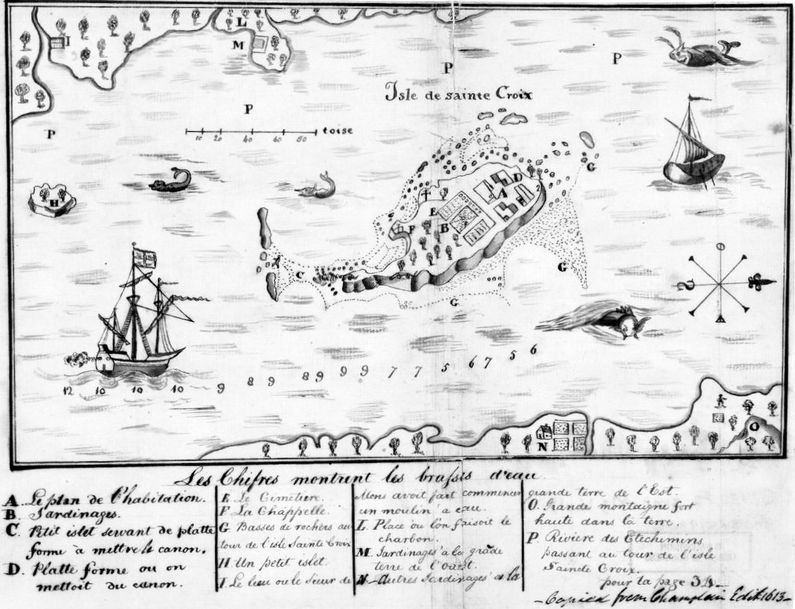 I
L
M
P
P
P
P
Isle de sainte Croix
10 20 40 60 80 toise
H
A
D
2
E
B
F
C
G
G
G
O
12 10 10 10 9 8 9 8 9 9 9 7 7 5 6 7 5 6
N
O
Les Chifres montrent les brassis d'eau
A Le plan de l'habitation.
B. Jardinages.
C. Petit islet servant de platte
forme à mettre le canon.
D. Platte forme ou on
mettoit du canon.
E. Le Cimetiere.
F La Chappelle.
G Basses de rochers au
tour de l'isle Sainte Croix
H. Un petit islet.
I. Le lieu ou le Sieur de
Mons avoit fait commencer
un moulin a eau.
L. Place ou l'on faisoit le
charbon.
M. Jardinages à la grade
terre de l'Ouest.
N Autres Jardinages a la
grande terre de l'Est.
O. Grande montaigne fort
haute dans la terre.
P. Riviere des Etechemins
passant au tour de l'isle
Saincte Croix.
pour la page 34
Copied from Champlain Edit. 1613